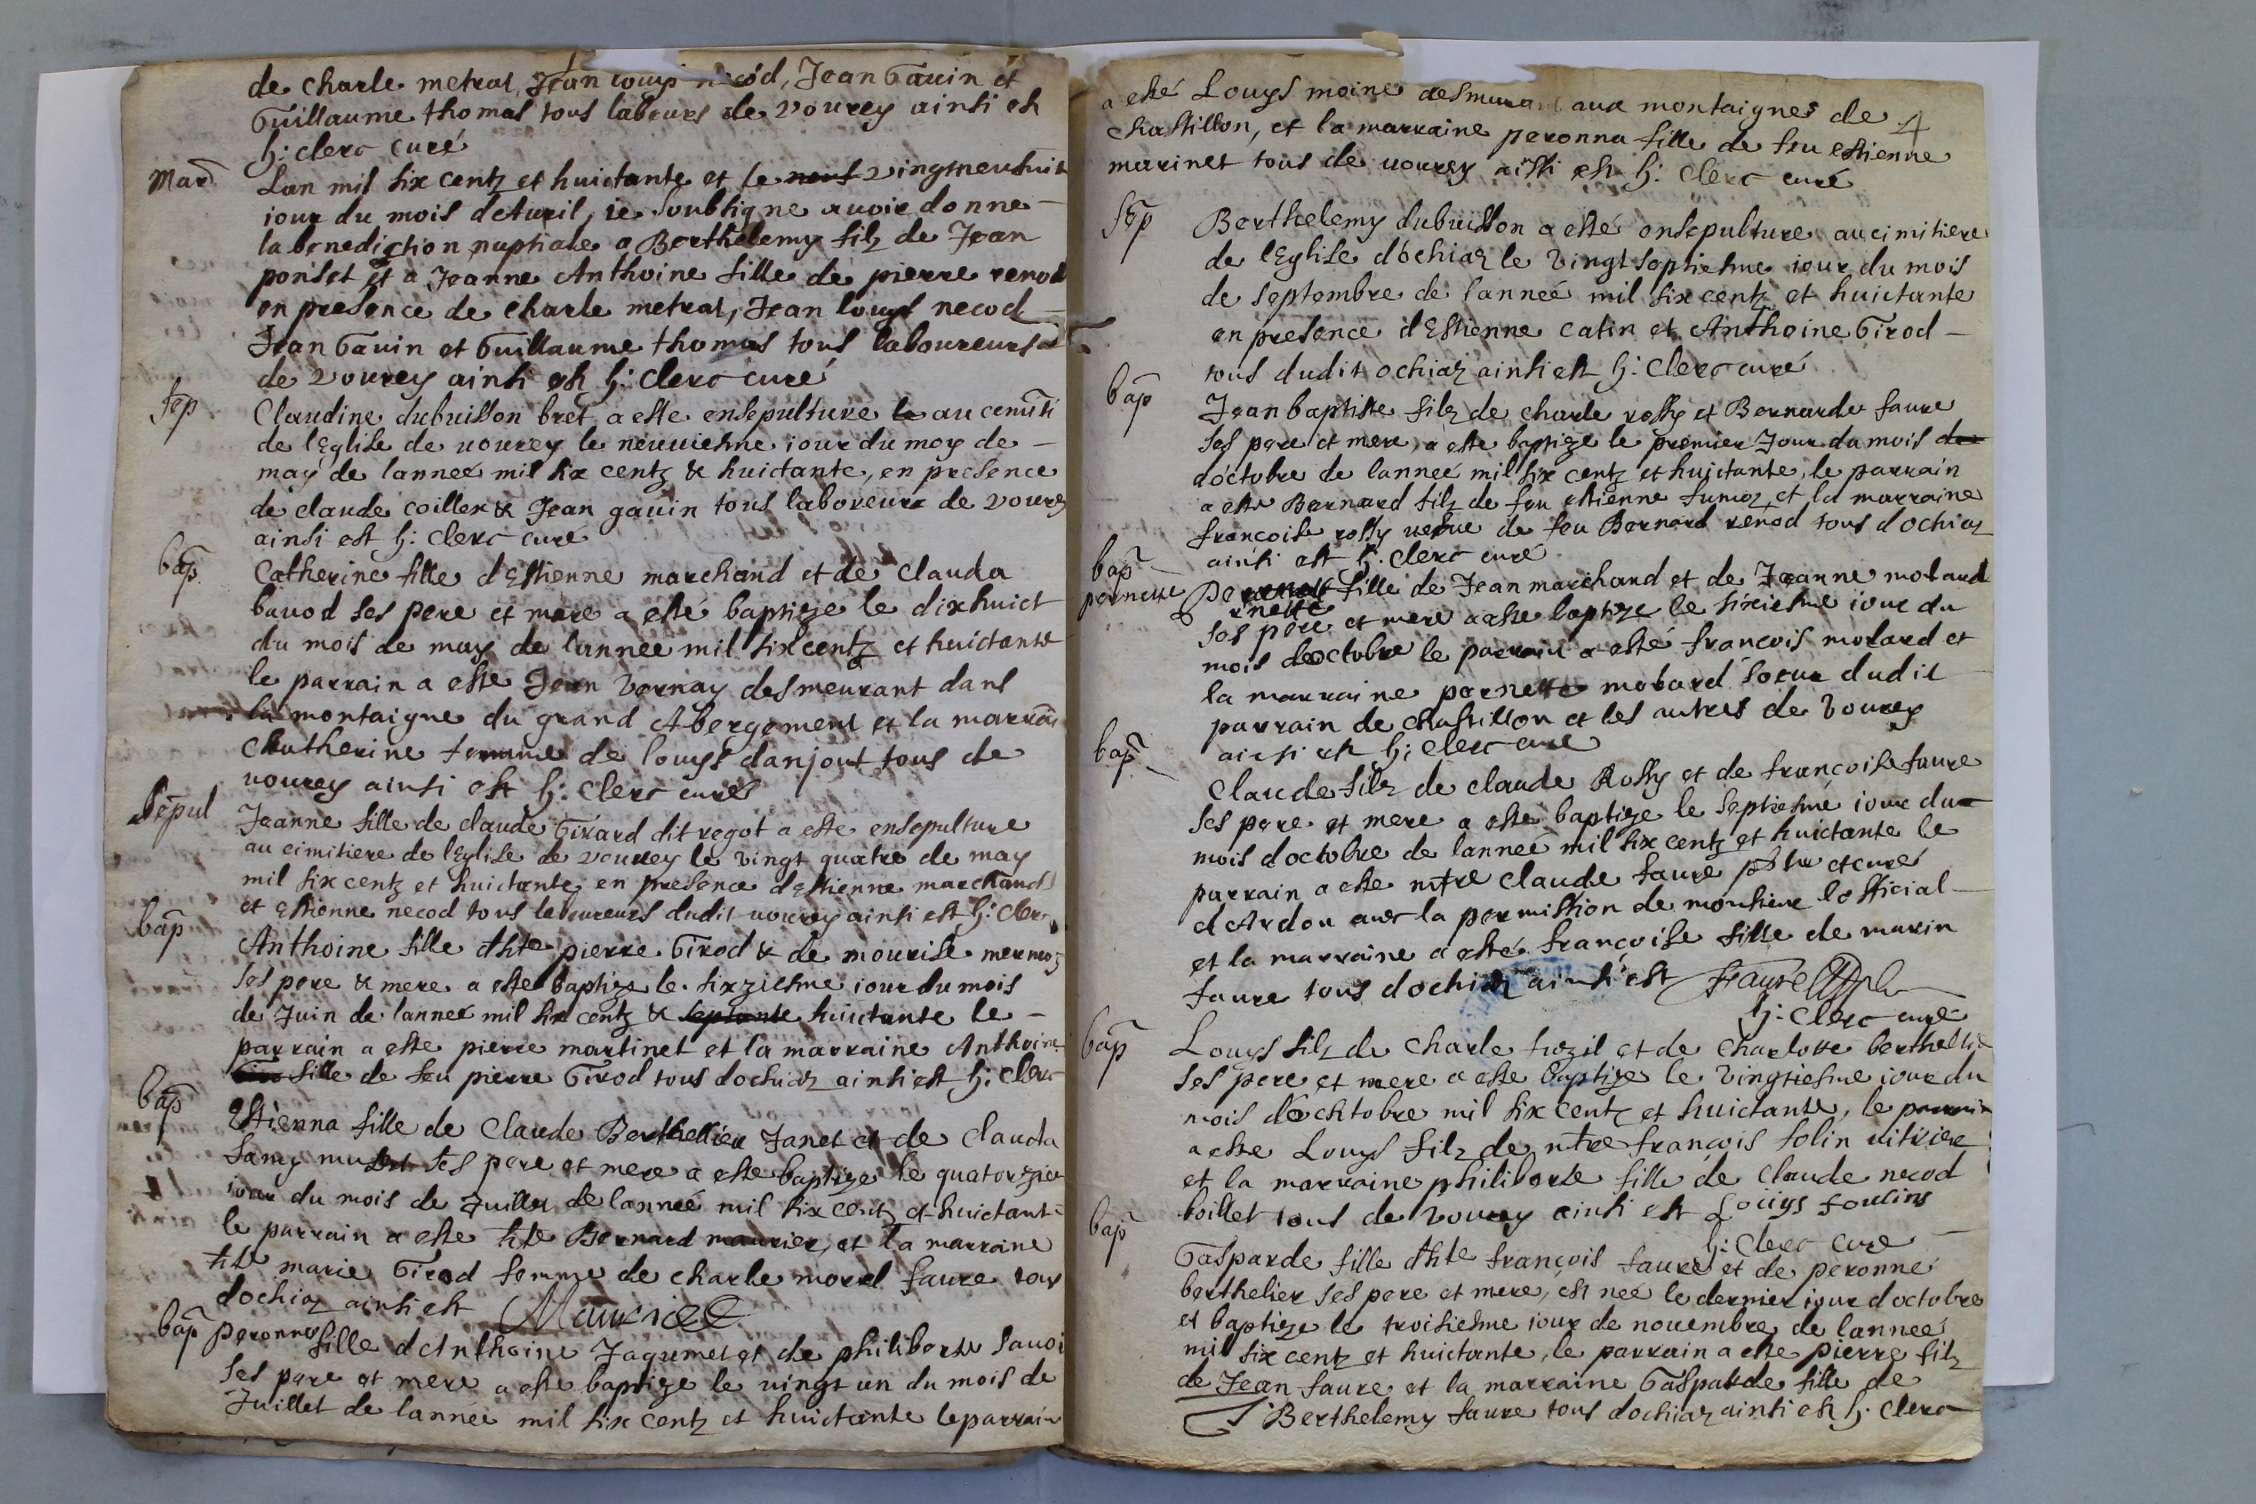 de charle metral, Jean louys necod, Jean Gavin et
Guillaume thomas tous labeurs de vourey ainsi est
h: clerc curé
Mar
Lan mil six centz et huictante et le vingtneufuie
iour du mois d'Auril, ie soubsigne auoir donne
la benediction nuptiale a Berthelemy filz de Jean
ponset et a Jeanne Anthoine fille de pierre renod
en presence de charle metral, Jean louys necod
Jean Gavin et Guillaume thomas tous laboureurs
de vourey ainsi est h: clerc curé
sep
Claudine dubuisson bret a este ensepulture au cemiti
de lEglise de vourey le neuuiesme iour du moy de
may de lanneé mil six centz & huictante, en presence
de claude coiller & Jean gavin tous laboreurs de vourey
ainsi est h: clerc curé
bap
Catherine fille d'Estienne marchand et de clauda
bavod ses pere et mere a esté baptize le dixhuict
du mois de may de lannee mil sixcentz et huictante
le parrain a este Jean vernay desmeurant dans
la montaigne du grand Abergement et la marrai
Chatherine femme de louys danjout tous de
vourey ainsi est h: clerc curé
sepul
Jeanne fille de claude Girard dit regot a este ensepulture
au cimitiere de lEglise de vourey le vingt quatre de may
mil six centz et huictante, en presence d'Estienne marchand
et Estienne necod tous laboureurs dudit vourey ainsi est h: clerc
bap
Anthoine fille d'hte pierre Girod & de mourise mermoz
ses pere & mere a este baptize le sixziesme iour du mois
de Juin de lanneé mil six centz & septante huictante le
parrain a este pierre martinet et la marraine Anthoine
fille de feu pierre Girod tous dochiaz ainsi est h: clerc
bap
Estienna fille de Claude Berthellier Janet et de Clauda
Samy ses pere et mere a este baptize le quatorzie
iour du mois de Juillet de lanneé mil six centz et huictante
le parrain a este hte Bernard maurier, et la marraine
hte marie Girod femme de charle morel faure tous
dochiaz ainsi est Maurier
bap
peronne fille d'Anthoine Jagumet et de philiberte Savoi
ses pere et mere a este baptize le vingt un du mois de
Juillet de lanneé mil six centz et huictante le parrain
4
a esté Louys moine aux montaignes de
chastillon, et la marraine peronna fille de feu estienne
marinet tous de vourey aissi est h: Clerc curé
sep
Berthelemy dubuisson a esté ensepulture au cimitiere
de lEglise dochiaz le vingt septiesme iour du mois
de septembre de lanneé mil six centz et huictante
en presence d'Estienne catin et Anthoine Girod
tous dudit ochiaz ainsi est h: Clerc curé
bap
Jean baptiste filz de charle rossy et Bernarde faure
ses pere et mere, a este baptize le premier Jour du mois
d'octobre de lanneé mil six centz et huictante, le parrain
a este Bernard filz de feu estienne et la marraine
francoise rossy vefue de feu Bernard renod tous dochiaz
ainsi est h. clerc curé
bap
pernette
Pernette fille de Jean marchand et de Jeanne molard
ses pere et mere a este baptize le sixiesme iour du
mois doctobre le parrain a esté francois molard et
la marraine pernette molard soeur dudit
parrain de chastillon et les autres de vourey
ainsi est h: clerc curé
bap
Claude filz de claude Rossy et de francoise faure
ses pere et mere a este baptize le septiesme iour du
mois doctobre de lanneé mil six centz et huictante le
parrain a este mtre claude faure pbtre et curé
dArdon auec la permission de monsieur lofficial
et la marraine a esté françoise fille de marin
faure tous dochiaz ainsi est Faure
h: clerc curé
bap
Louys filz de charle et de charlotte berthellie
ses pere et mere a este baptize le vingtiesme iour du
mois d'ochtobre mil six centz et huictante, le parrain
a este Louys filz de mtre françois solin vitrier
et la marraine philiberte fille de claude necod
boillet tous de vourey ainsi est Loüys soulins
h: Clerc curé
bap
Gasparde fille d'hte françois faure et de peronne
berthelier ses pere et mere, est neé le dernier iour doctobre
et baptize le troisiesme iour de nouembre de lanneé
mil six centz et huictante, le parrain a este pierre filz
de Jean faure et la marraine Gasparde fille de
Berthelemy faure tous dochiaz ainsi est h: clerc